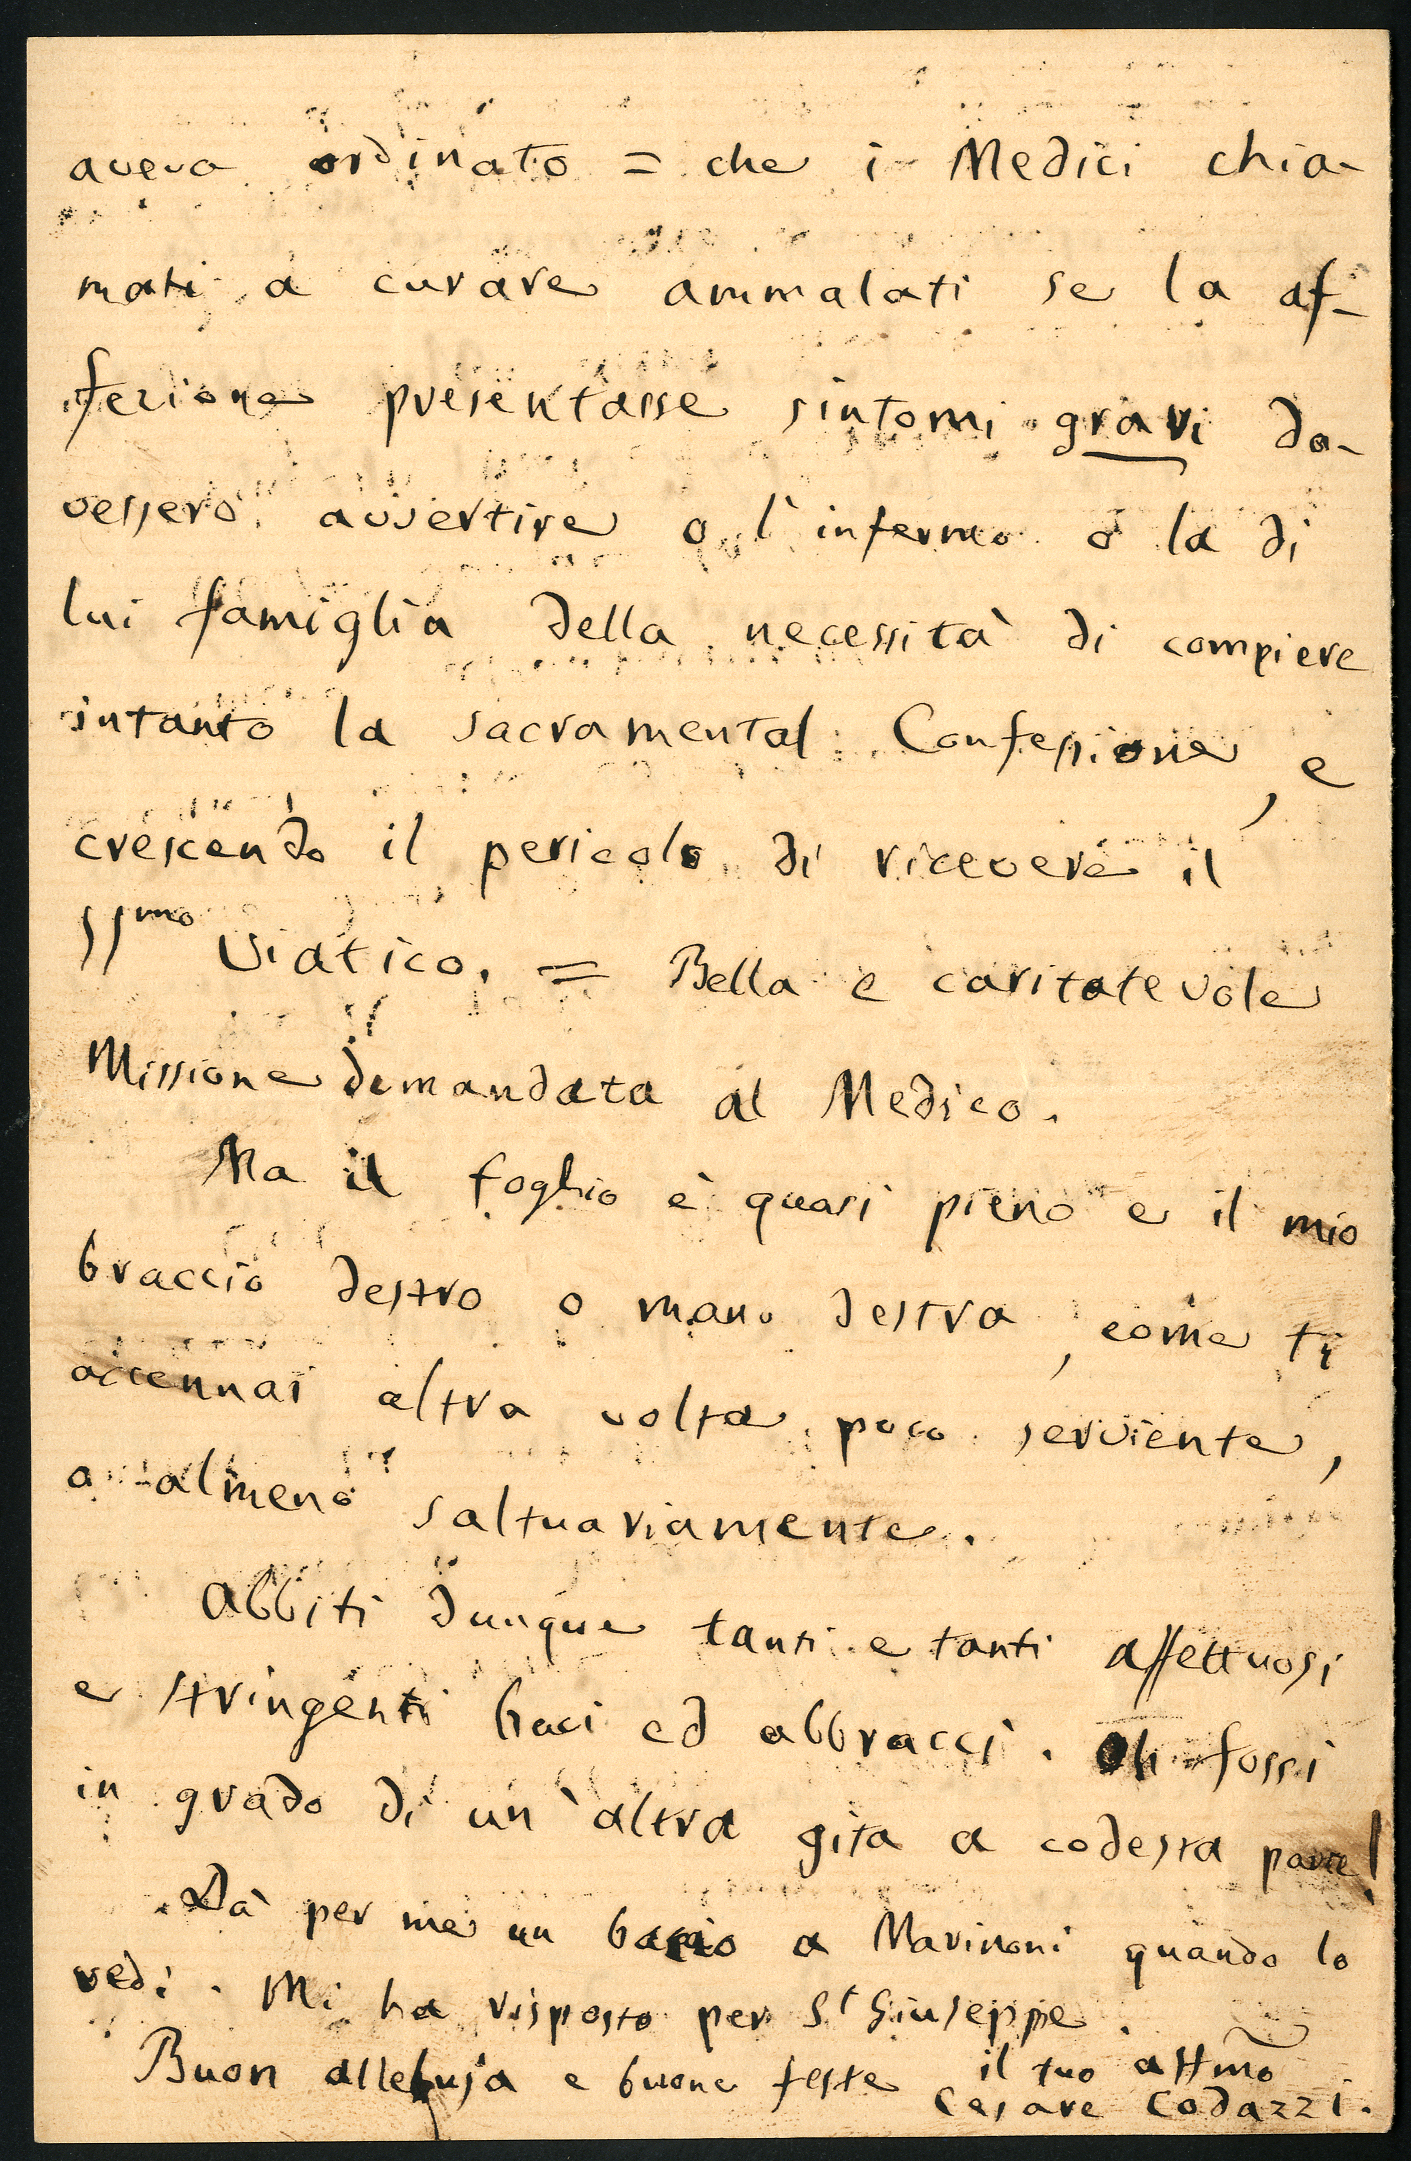 aveva ordinato = che i Medici chia-
mati a curare ammalati se la af-
fezione presentasse sintomi gravi do-
vessero avvertire o l'infermo o la di
lui famiglia della necessità di compiere
intanto la sacramental Confessione, e
crescendo il pericolo di ricevere il
SSmo Viatico. = Bella e caritatevole
Missione demandata al Medico.
Ma il foglio è quasi pieno e il mio
braccio destro o mano destra, come ti
accennai altra volta poco serviente,
o almeno saltuariamente.
Abbiti dunque tanti e tanti affettuosi
e stringenti baci ed abbracci. Oh fossi
in grado di un'altra gita a codesta parte!
Dà per me un bacio a Marinoni quando lo
vedi. Mi ha risposto per St Giuseppe.
Buon alleluja e buone feste il tuo affmo
Cesare Codazzi.